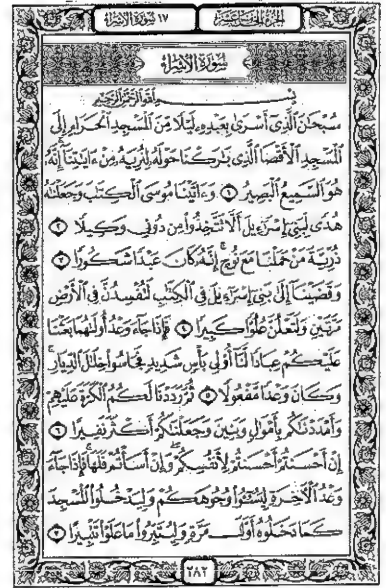 الجزء الخامس عشر ١٧ سورة الإسراء
سورة الإسراء
بسم الله الرحمن الرحيم
سُبْحَٰنَ ٱلَّذِىٓ أَسْرَىٰ بِعَبْدِهِۦ لَيْلًا مِّنَ ٱلْمَسْجِدِ ٱلْحَرَامِ إِلَى
ٱلْمَسْجِدِ ٱلْأَقْصَا ٱلَّذِى بَٰرَكْنَا حَوْلَهُۥ لِنُرِيَهُۥ مِنْ ءَايَٰتِنَآ إِنَّهُۥ
هُوَ ٱلسَّمِيعُ ٱلْبَصِيرُ ١ وَءَاتَيْنَا مُوسَى ٱلْكِتَٰبَ وَجَعَلْنَٰهُ
هُدًى لِّبَنِىٓ إِسْرَٰٓءِيلَ أَلَّا تَتَّخِذُوا۟ مِن دُونِى وَكِيلًا ٢
ذُرِّيَّةَ مَنْ حَمَلْنَا مَعَ نُوحٍ إِنَّهُۥ كَانَ عَبْدًا شَكُورًا ٣
وَقَضَيْنَآ إِلَىٰ بَنِىٓ إِسْرَٰٓءِيلَ فِى ٱلْكِتَٰبِ لَتُفْسِدُنَّ فِى ٱلْأَرْضِ
مَرَّتَيْنِ وَلَتَعْلُنَّ عُلُوًّا كَبِيرًا ٤ فَإِذَا جَآءَ وَعْدُ أُولَىٰهُمَا بَعَثْنَا
عَلَيْكُمْ عِبَادًا لَّنَآ أُو۟لِى بَأْسٍ شَدِيدٍ فَجَاسُوا۟ خِلَٰلَ ٱلدِّيَارِ
وَكَانَ وَعْدًا مَّفْعُولًا ٥ ثُمَّ رَدَدْنَا لَكُمُ ٱلْكَرَّةَ عَلَيْهِمْ
وَأَمْدَدْنَٰكُم بِأَمْوَٰلٍ وَبَنِينَ وَجَعَلْنَٰكُمْ أَكْثَرَ نَفِيرًا ٦
إِنْ أَحْسَنتُمْ أَحْسَنتُمْ لِأَنفُسِكُمْ وَإِنْ أَسَأْتُمْ فَلَهَا فَإِذَا جَآءَ
وَعْدُ ٱلْـَٔاخِرَةِ لِيَسُۥٓـُٔوا۟ وُجُوهَكُمْ وَلِيَدْخُلُوا۟ ٱلْمَسْجِدَ
كَمَا دَخَلُوهُ أَوَّلَ مَرَّةٍ وَلِيُتَبِّرُوا۟ مَا عَلَوْا۟ تَتْبِيرًا ٧
٢٨٢